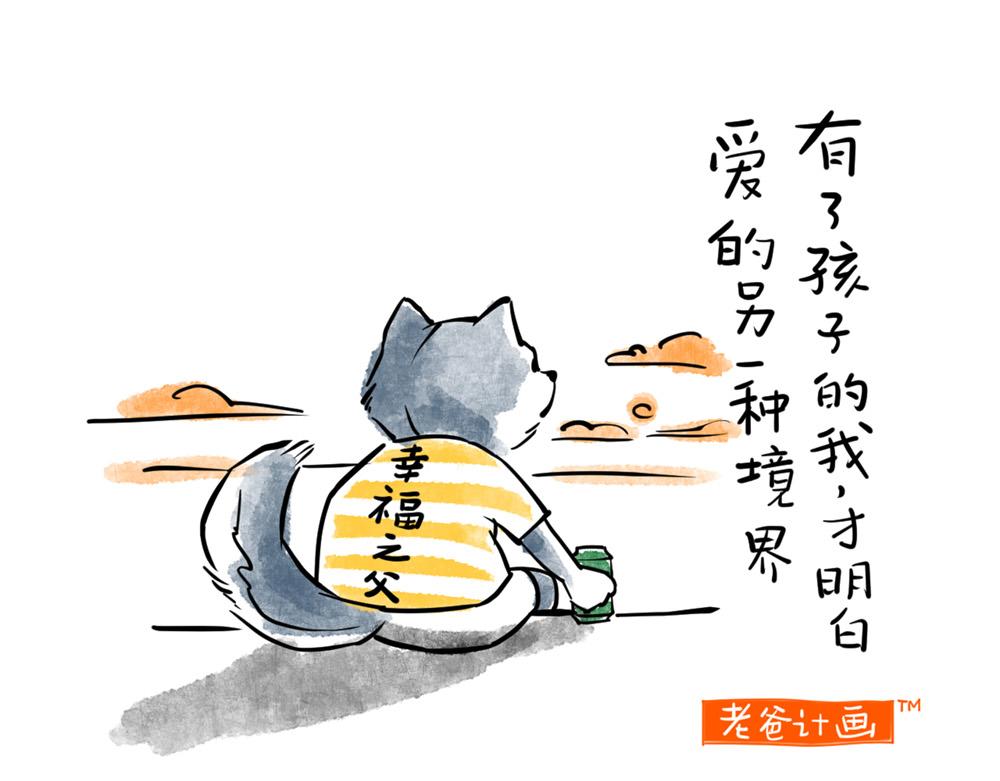 有了孩子的我，才明白
爱的另一种境界
幸福之父
老爸计画™